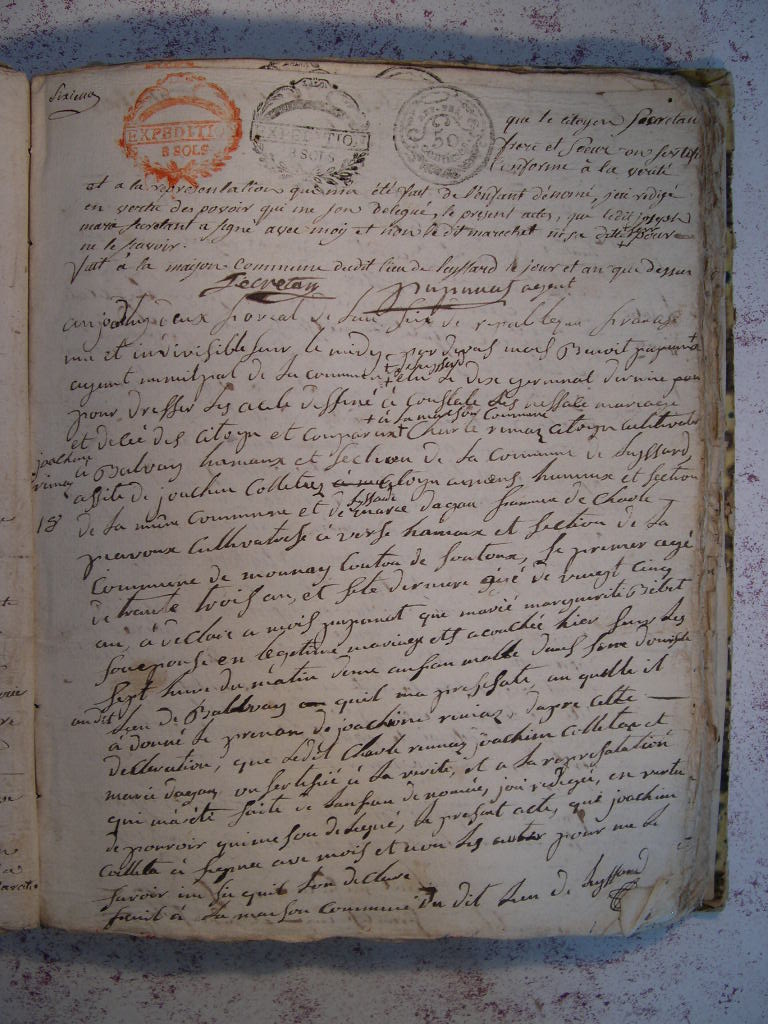 Sixieme
EXPEDITIO
8 SOLS
EXPEDITIO
8 SOLS
50
que le citoyen Secretan
frere et Soeur on sertifi
conforme à la verité
et a la representation que ma été fait de l'enfant dénomé, jai redigé
en vertu des povoir qui me son delegué, le présent actes, que ledit joseph
marie Secretant a signé avec moy et non ledit marechet
ne le savoir.
Fait à la maison Commune dudit lieu de Seyssard le jour et an que dessus
Secretan agent
aujourdhuy deux floreal de lan six de republique fransaise
une et indivisible sur le midy, par devas mois Benoit
agent munitipal de la commune de Seyssard elu le dix germinal dernie pour
pour dresser les acte déssiné à constate les nessase mariage
à la maison Commune
et décé des citoyn et comparant Charle remaz citoyn cultivateur
joachim
remaz
à Balvay hamaux et section de la Commune de Seyssard,
assite de joachim Colletaz citoyn hamaux et section
18
de la même Commune et de marie dagan framme de Charle
pravoux Cultivatrise à verse hamaux et section de la
Commune de mournay Canton de Sontonx, le premier agé
de trante trois an, et sete derniere géré de vaingt cinq
an, à declaré a mois que marié marguerite Bibet
son epouse en legetime mariage ets acouchée hier sur les
sept heure du matin deme anfan malle dans sone domisile
au dit
lieu de Balavay quil ma presetate, au quelle il
à donné le prenon de joachime remaz, dapre cette
declaration, que ledit Charle remaz joachim Colletaz et
marie dagan, on sertifié à la verité, et a la represetation
qui maété faite de lanfan denomée, jai redigée, en vertu
de pouvoir qui me son delegué, le présent acte, que joachim
Colleta à signe ave mois et non les autre pour ne le
savoir insi quil lon declare
fait à la maison Commune du dit lieu de Seyssard